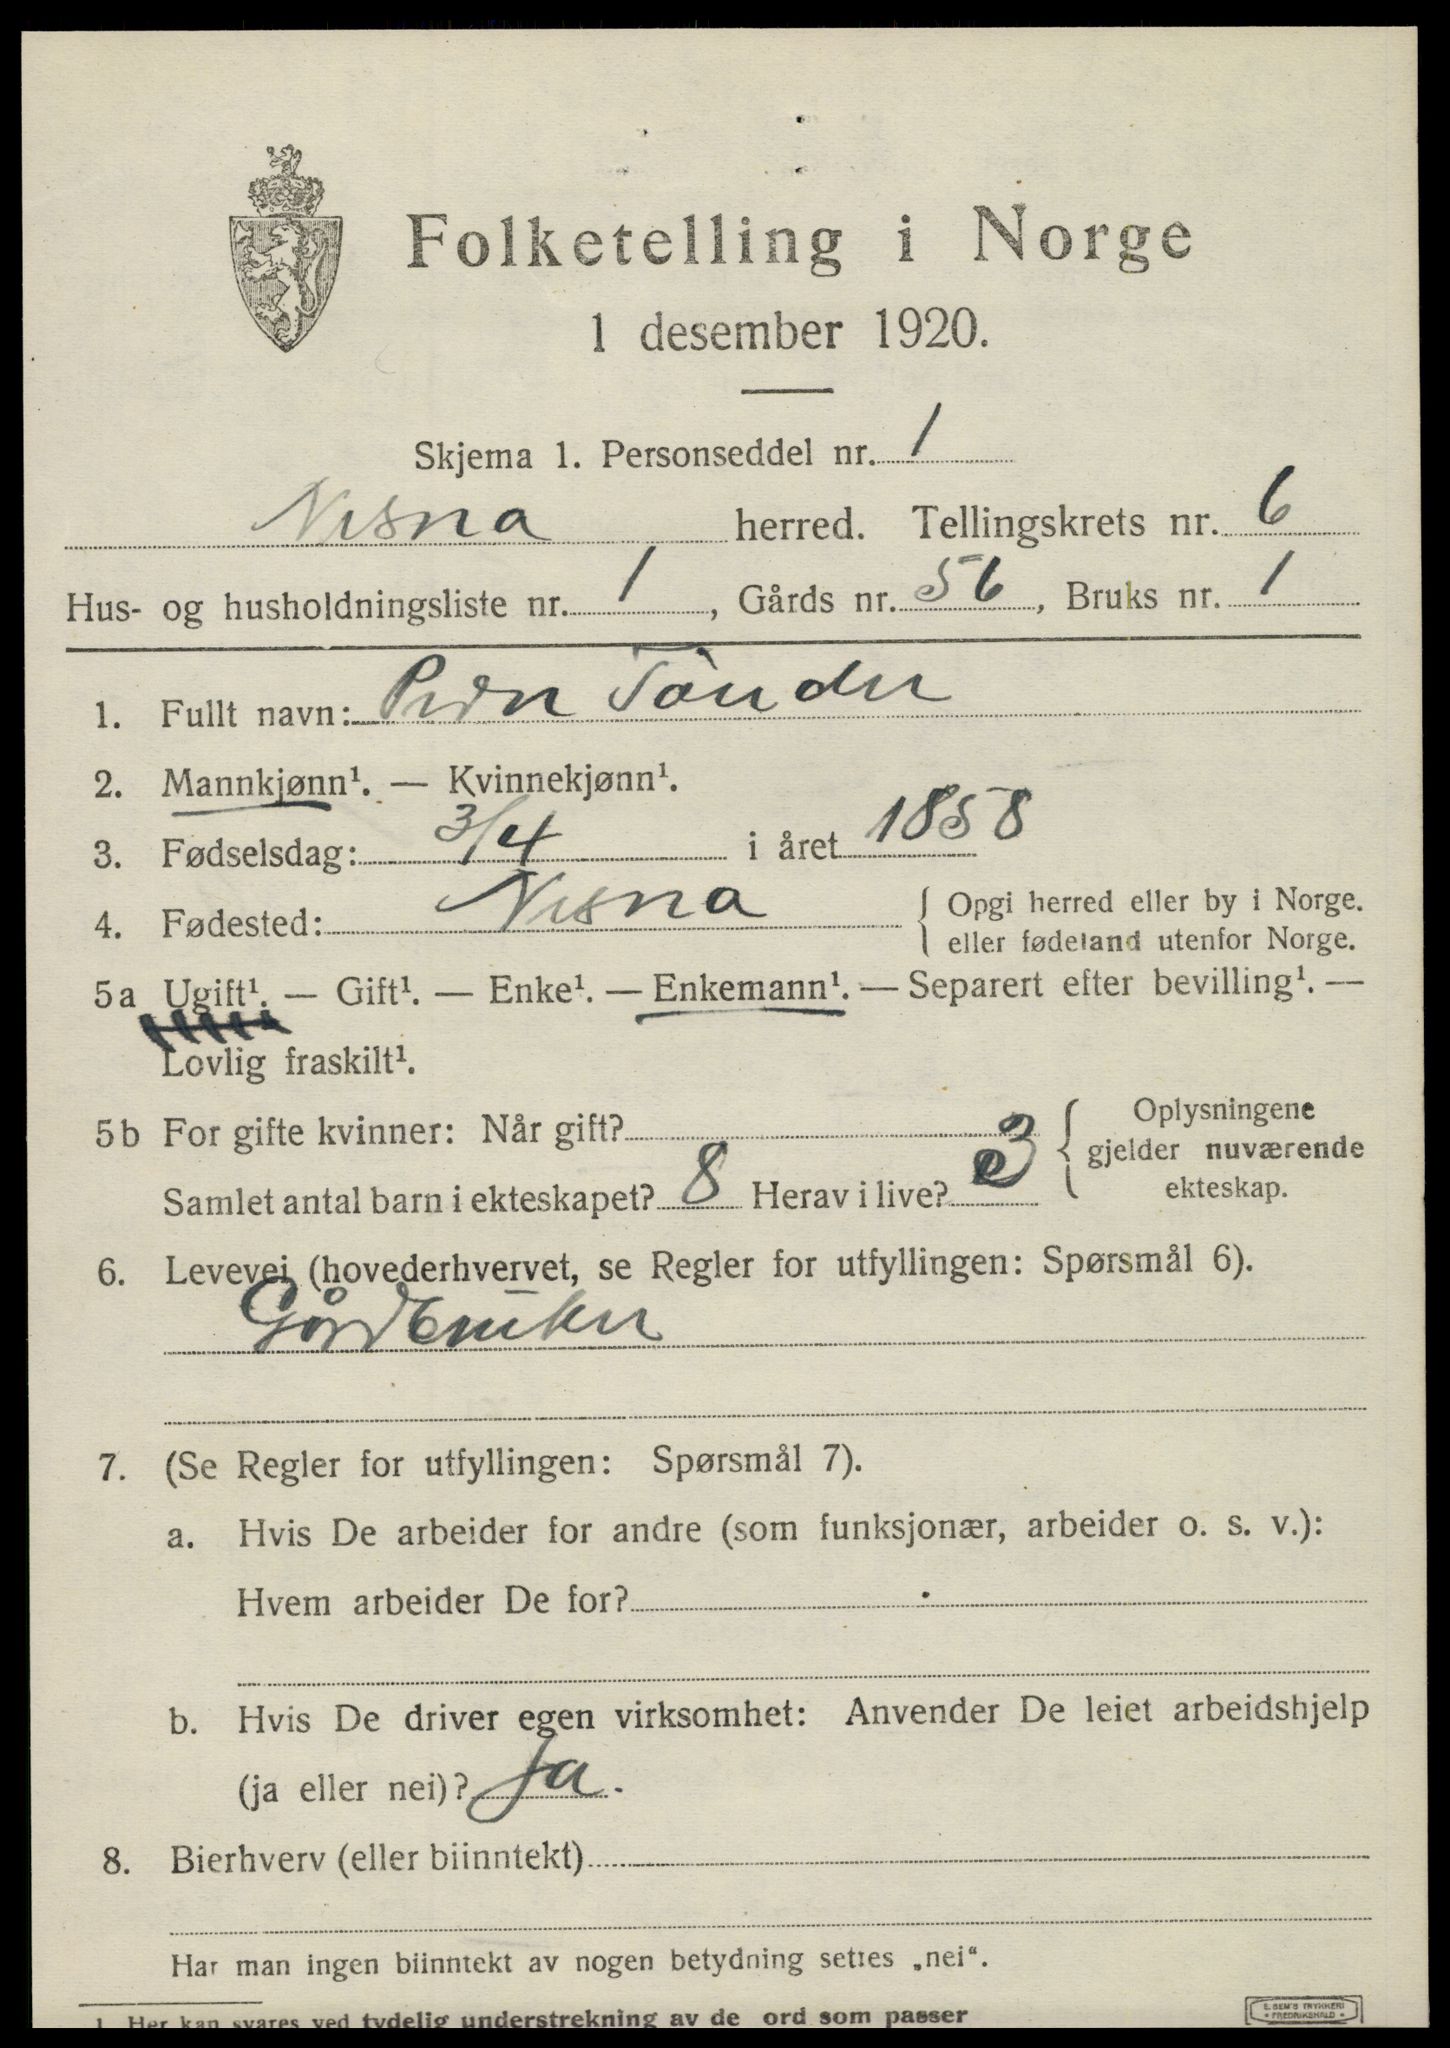 Folketelling i Norge
1 desember 1920.
Skjema 1. Personseddel nr. 1
Nesna herred. Tellingskrets nr. 6
Hus- og husholdningsliste nr. 1, Gårds nr. 56, Bruks nr. 1
1. Fullt navn: Peder Tønder
2. Mannkjønn¹. — Kvinnekjønn¹.
3. Fødselsdag: 3/4 i året 1858
4. Fødested: Nesna { Opgi herred eller by i Norge.
eller fødeland utenfor Norge.
5a Ugift¹. — Gift¹. — Enke¹. — Enkemann¹. — Separert efter bevilling¹. —
Lovlig fraskilt¹.
5b For gifte kvinner: Når gift?
Samlet antal barn i ekteskapet? 8 Herav i live? 3
{ Oplysningene
gjelder nuværende
ekteskap.
6. Levevei (hovederhvervet, se Regler for utfyllingen: Spørsmål 6).
Gårdbruker
7. (Se Regler for utfyllingen: Spørsmål 7).
a. Hvis De arbeider for andre (som funksjonær, arbeider o. s. v.):
Hvem arbeider De for?
b. Hvis De driver egen virksomhet: Anvender De leiet arbeidshjelp
(ja eller nei)? Ja.
8. Bierhverv (eller biinntekt)
Har man ingen biinntekt av nogen betydning settes „nei“.
1 Her kan svares ved tydelig understrekning av de ord som passer
E. SEM'S TRYKKERI
• FREDRIKSHALD •